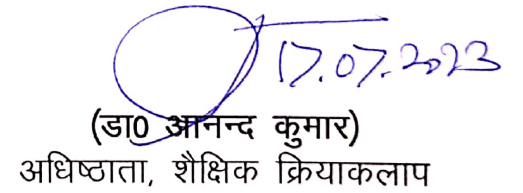 17.07.2023
(डा0 आनन्द कुमार)
अधिष्ठाता, शैक्षिक क्रियाकलाप